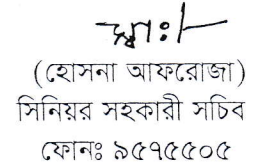 স্বাঃ/-
(হোসনা আফরোজা)
সিনিয়র সহকারী সচিব
ফোনঃ ৯৫৭৫৫০৫